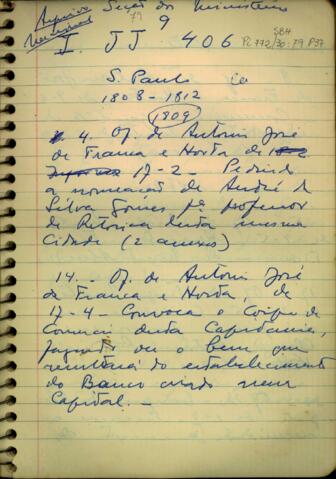 Arquivo Nacional
Seção dos Ministérios
79
9
I. JJ 406
SBH
Pi 772/30.79 P37
S. Paulo
1808-1812
1809
4. Of. de Antonio José
de Franca e Horta de
17-2- Pedindo
a nomeação de André da
Silva Gomes pª professor
de Retorica desta mesma
cidade (2 anexos)
14- Of. de Antonio José
de Franca e Horta, de
17-4- Convoca o Corpo de
Comercio desta Capitania,
ou o bem que
resultará do estabelecimento
do Banco creado nessa
Capital. —